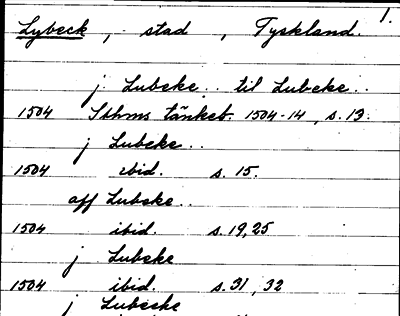 1.
Lybeck, stad, Tyskland.
j Lubeke.. til Lubeke..
1504 Sthms tänkeb. 1504-14, s. 13.
j Lubeke..
1504 ibid. s. 15.
aff Lubeke..
1504 ibid. s. 19, 25
j Lubeke
1504 ibid. s. 31, 32
j Lubecke